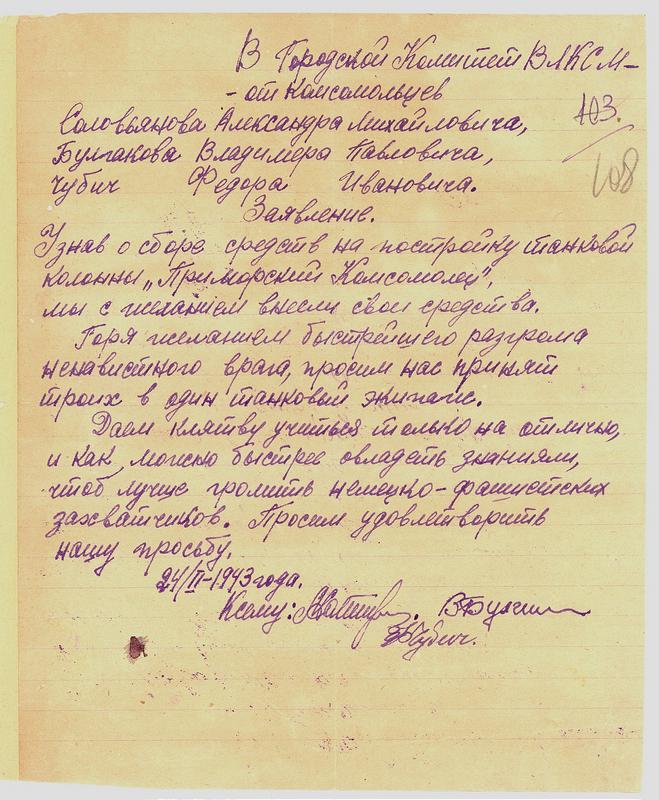 В Городской Комитет ВЛКСМ-
- от комсомольцев
103.
Соловьянова Александра Михайловича,
Булгакова Владимера Павловича,
108
Чубич Федора Ивановича.
Заявление.
Узнав о сборе средств на постройку танковой
колонны „Приморский Комсомолец",
мы с желанием внесли свои средства.
Горя желанием быстрейшего разгрома
ненавистного врага, просим нас принят
троих в один танковый экипаж.
Даем клятву учиться только на отлично,
и как можно быстрее овладеть знаниями,
чтоб лучше громить немецко-фашистских
захватчиков. Просим удовлетворить
нашу просьбу.
24/II-1943 года.
К сему:
Чубич.